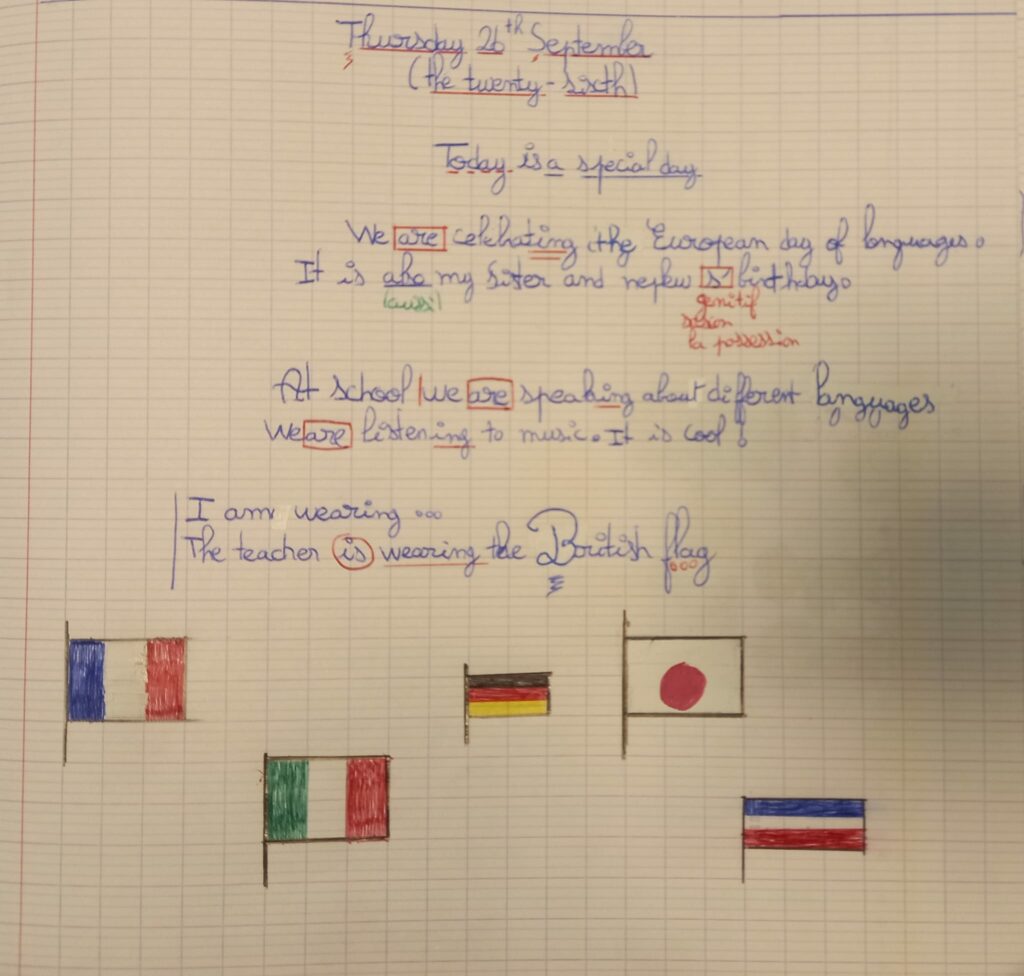 Thursday 26th September
(the twenty-sixth)
Today is a special day
We are celebrating the European day of languages.
It is also my sister and nephew s' birthday.
(aussi)
genitif
la possession
At school we are speaking about different languages
We are listening to music. It is cool!
I am wearing ...
The teacher is wearing the British flag